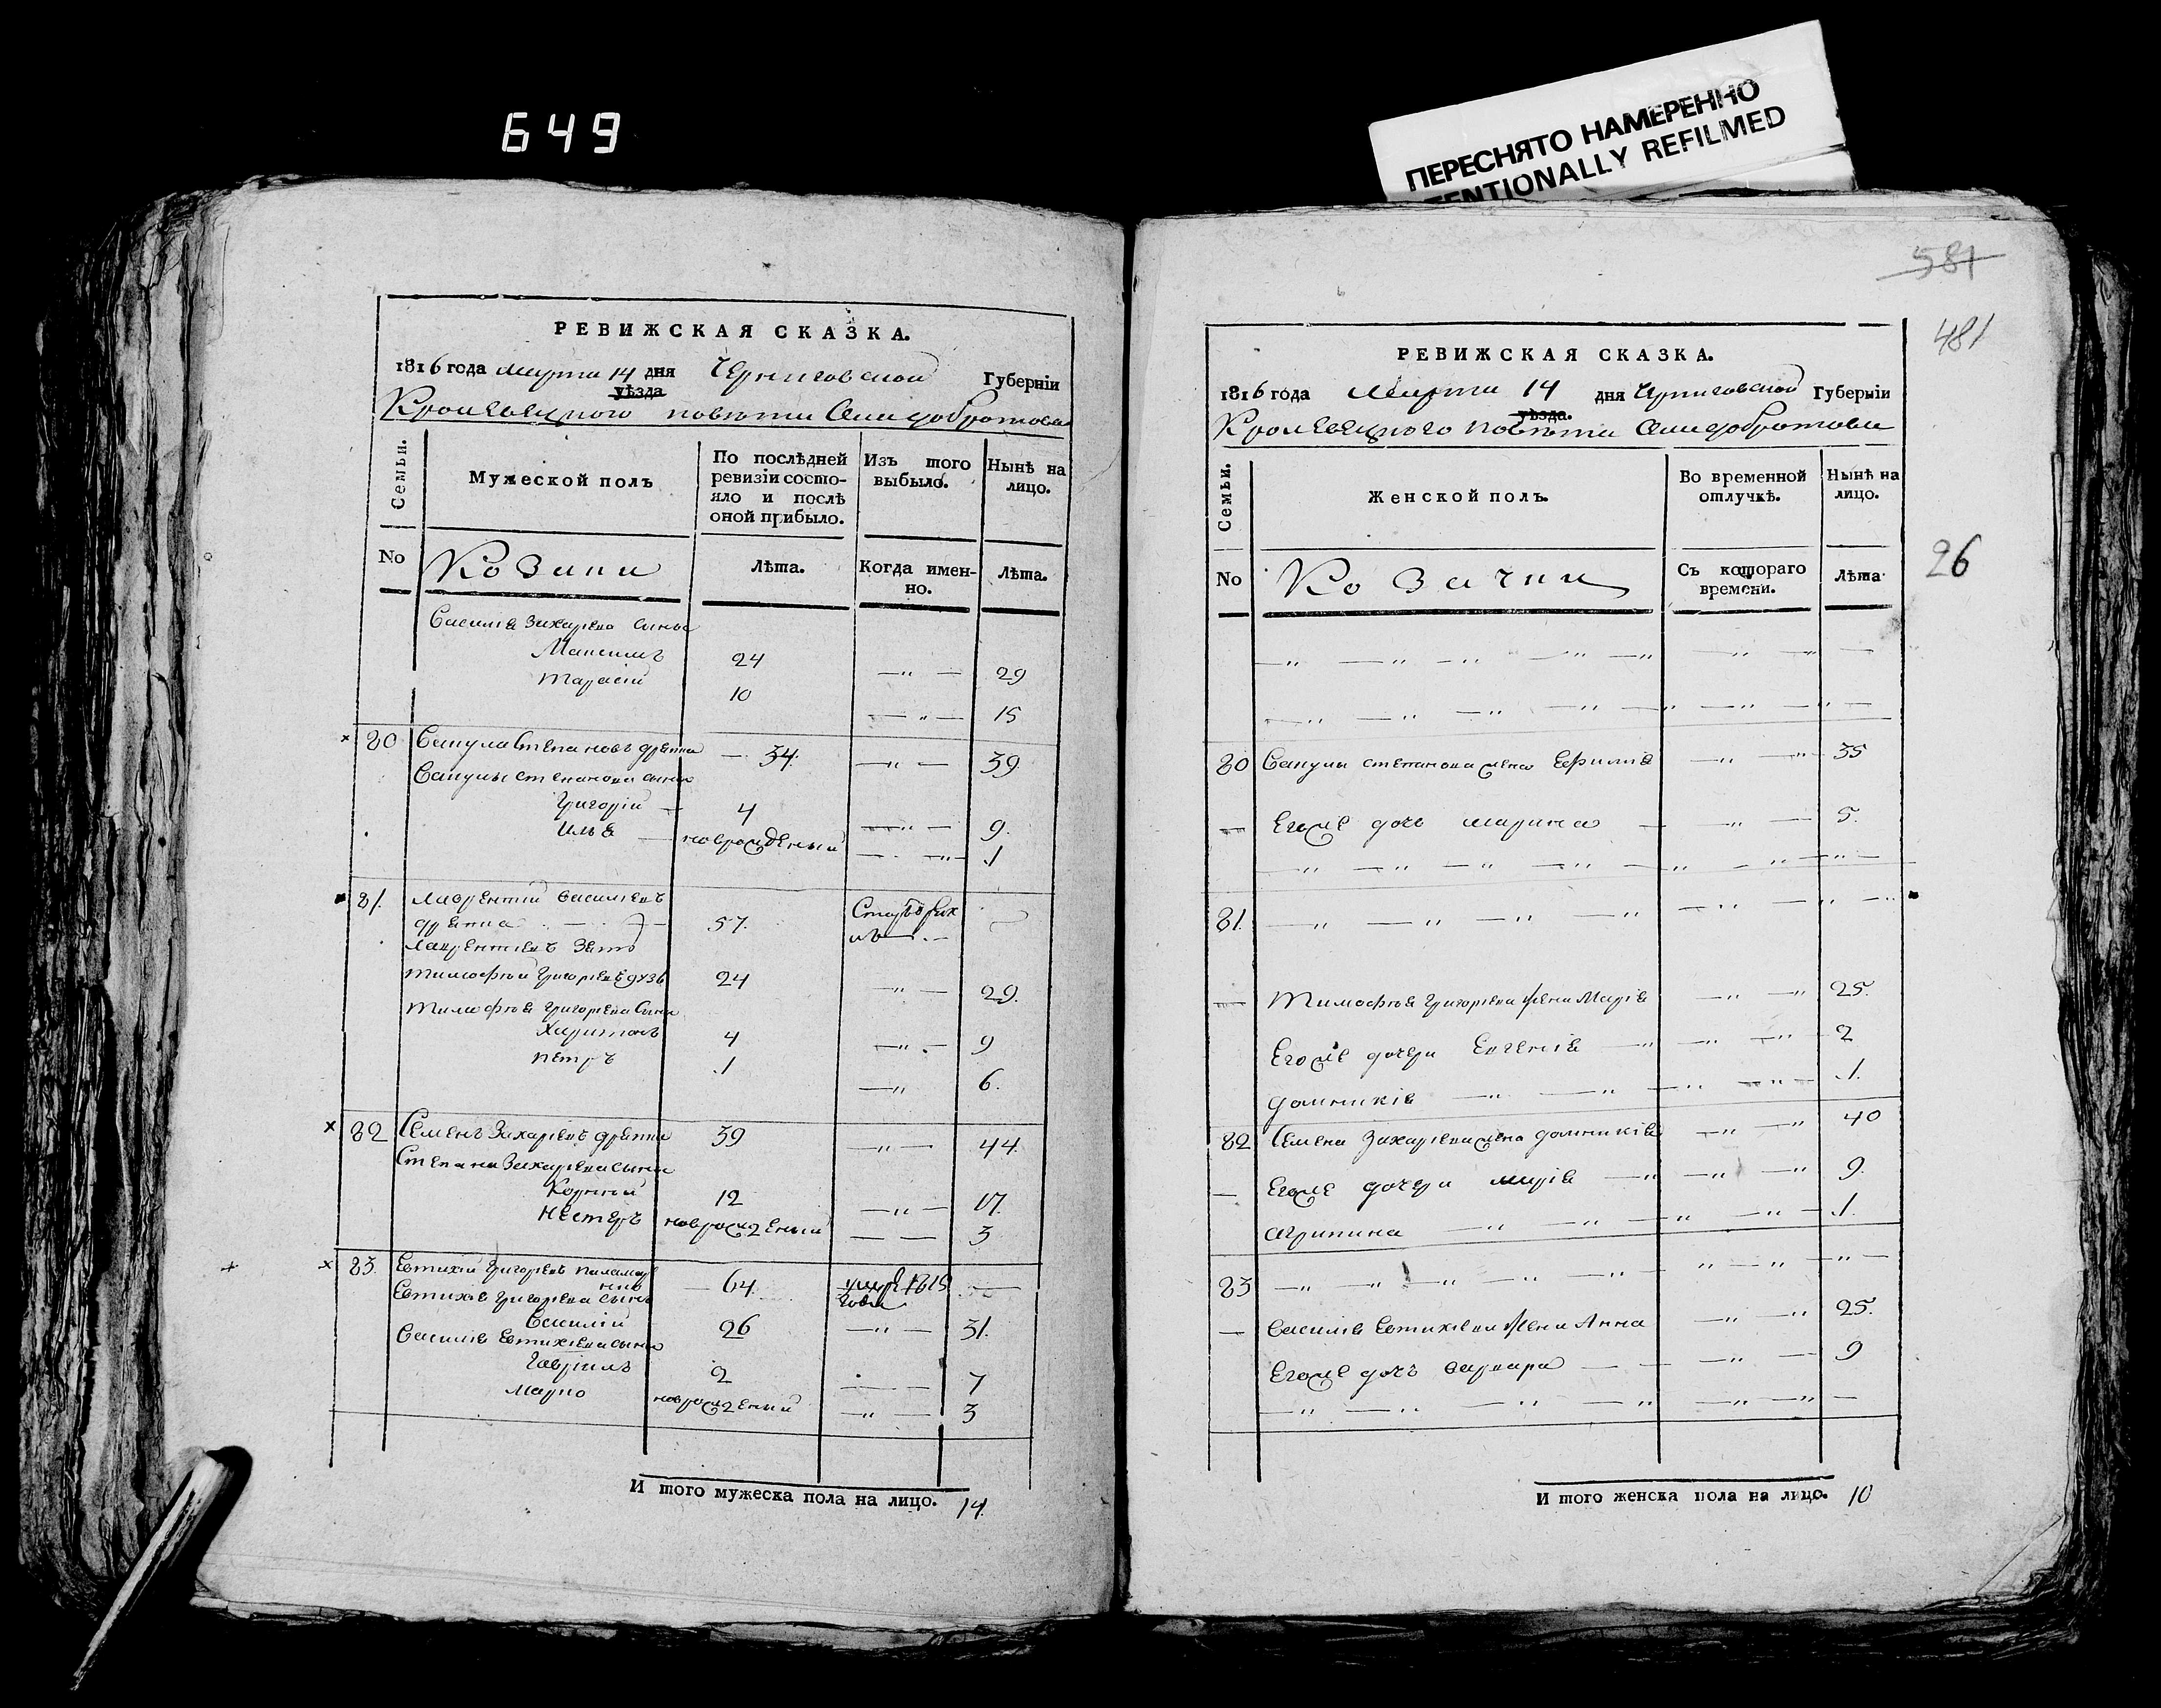 649
ПЕРЕСНЯТО НАМЕРЕННО
TENTIONALLY REFILMED
РЕВИЖСКАЯ СКАЗКА.
1816 года марта 14 дня Черниговской Губерніи
уѣзда
Кролевецкого повѣта
Семьи.
Мужеской полъ
По послѣдней ревизіи состояло и послѣ оной прибыло.
Изъ того выбыло.
Нынѣ на лицо.
No
Козаки
Лѣта.
Когда именно.
Лѣта.
Василія Захарьева сыны
Максимъ 24 29
Тарасій 10 15
80 Степановъ 34. 39
Степанова сыны
Григорій 4 9.
Илья новрожденный 1
81. Лаврентій Васильевъ
57.
Лаврентіевъ зять
Тимофѣй Григорьевъ 24 29.
Тимофѣя Григорьева сыны
Харитонъ 4 9
Петръ 1 6.
82 Семенъ Захарьевъ 39 44.
Степана Захарьева сыны
Корній 12 17.
Несторъ новрожденный 3
83. Евтихій Григорьевъ 64. 1815
Евтихія Григорьева сынъ
Василій 26 31.
Василія Евтихіева сыны
Гавріилъ 2 7
Марко новрожденный 3
И того мужеска пола на лицо. 14.
581
481
26
РЕВИЖСКАЯ СКАЗКА.
1816 года Марта 14 дня Черниговской Губерніи
уѣзда.
Кролевецкого повѣта
Семьи.
Женской полъ.
Во временной отлучкѣ.
Нынѣ на лицо.
No
Козачки
Съ котораго времени.
Лѣта
80 Степанова жена Ефимія 35
Егоже дочь Марина 5.
81.
Тимофѣя Григорьева жена Марія 25.
Егоже дочери Евгенія 2
Домникія 1.
82 Семена Захарьева жена Домникія 40
Егоже дочери Марія 9.
Агрипина 1.
83
Василія Евтихіева жена Анна 25.
Егоже дочь Варвара 9
И того женска пола на лицо. 10